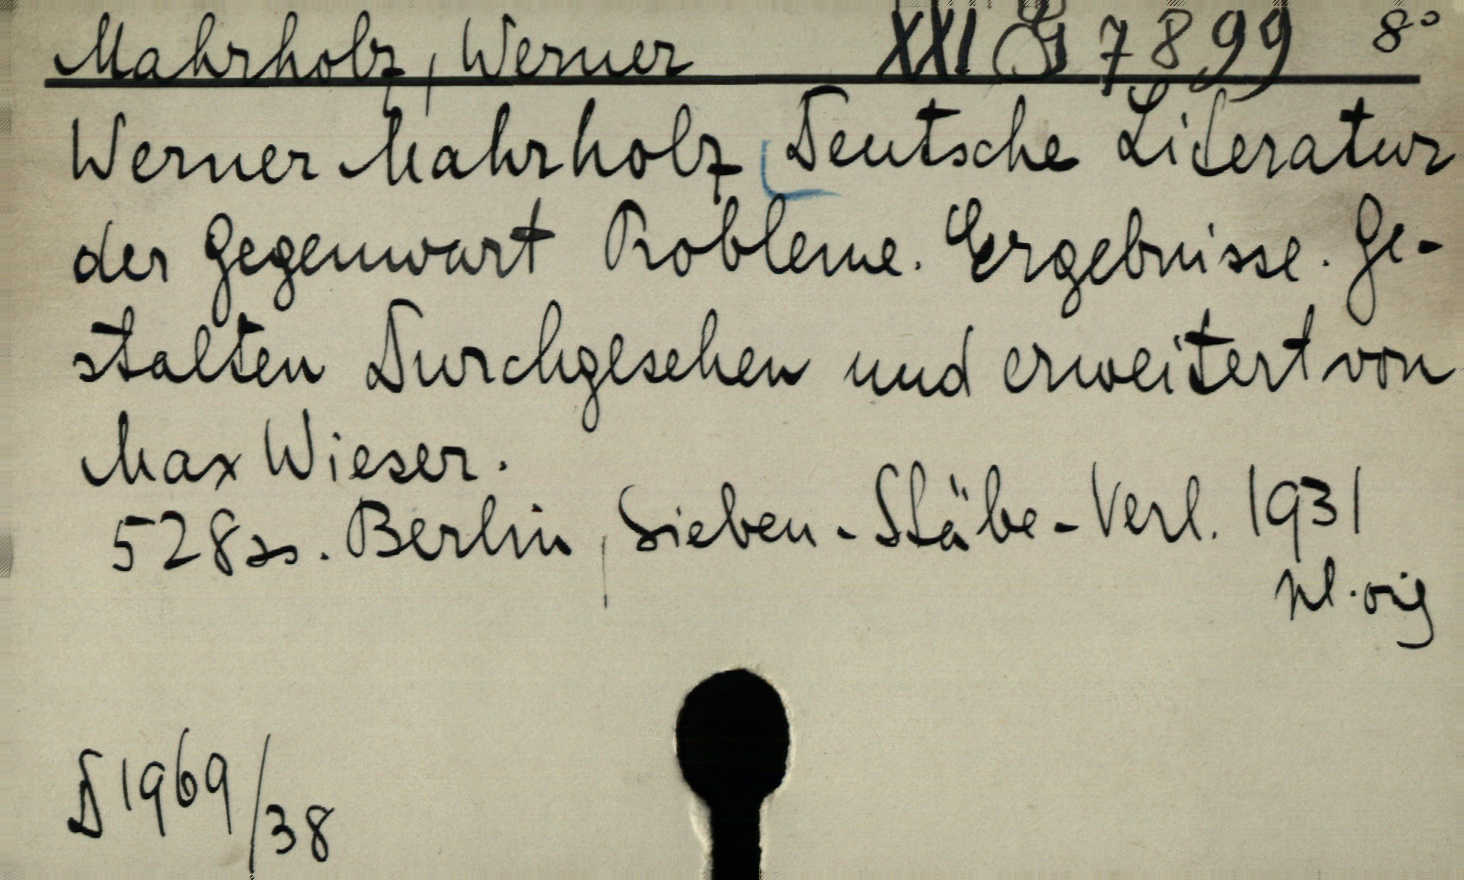 Mahrholz, Werner XXI G 7899 8°
Werner Mahrholz Deutsche Literatur
der Gegenwart Probleme. Ergebnisse. Ge-
stalten Durchgesehen und erweitert von
Max Wieser.
528 ss. Berlin, Sieben-Stäbe-Verl. 1931
pl. orig
D 1969/38